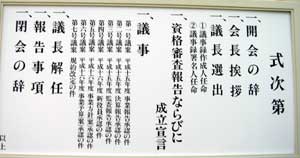 式次第
一、開会の辞
一、会長挨拶
一、議長選出
①議事録作成人任命
②議事録署名人任命
資格審査報告ならびに
成立宣言
一、議事
第一号議案 平成十五年度事業報告承認の件
第二号議案 平成十五年度決算報告承認の件
第三号議案 平成十五年度監査報告承認の件
第四号議案 平成十六年度新役員承認の件
第五号議案 平成十六年度事業方針案承認の件
第六号議案 平成十六年度事業予算案承認の件
第七号議案 規約改定の件
一、議長解任
一、報告事項
一、閉会の辞
以上